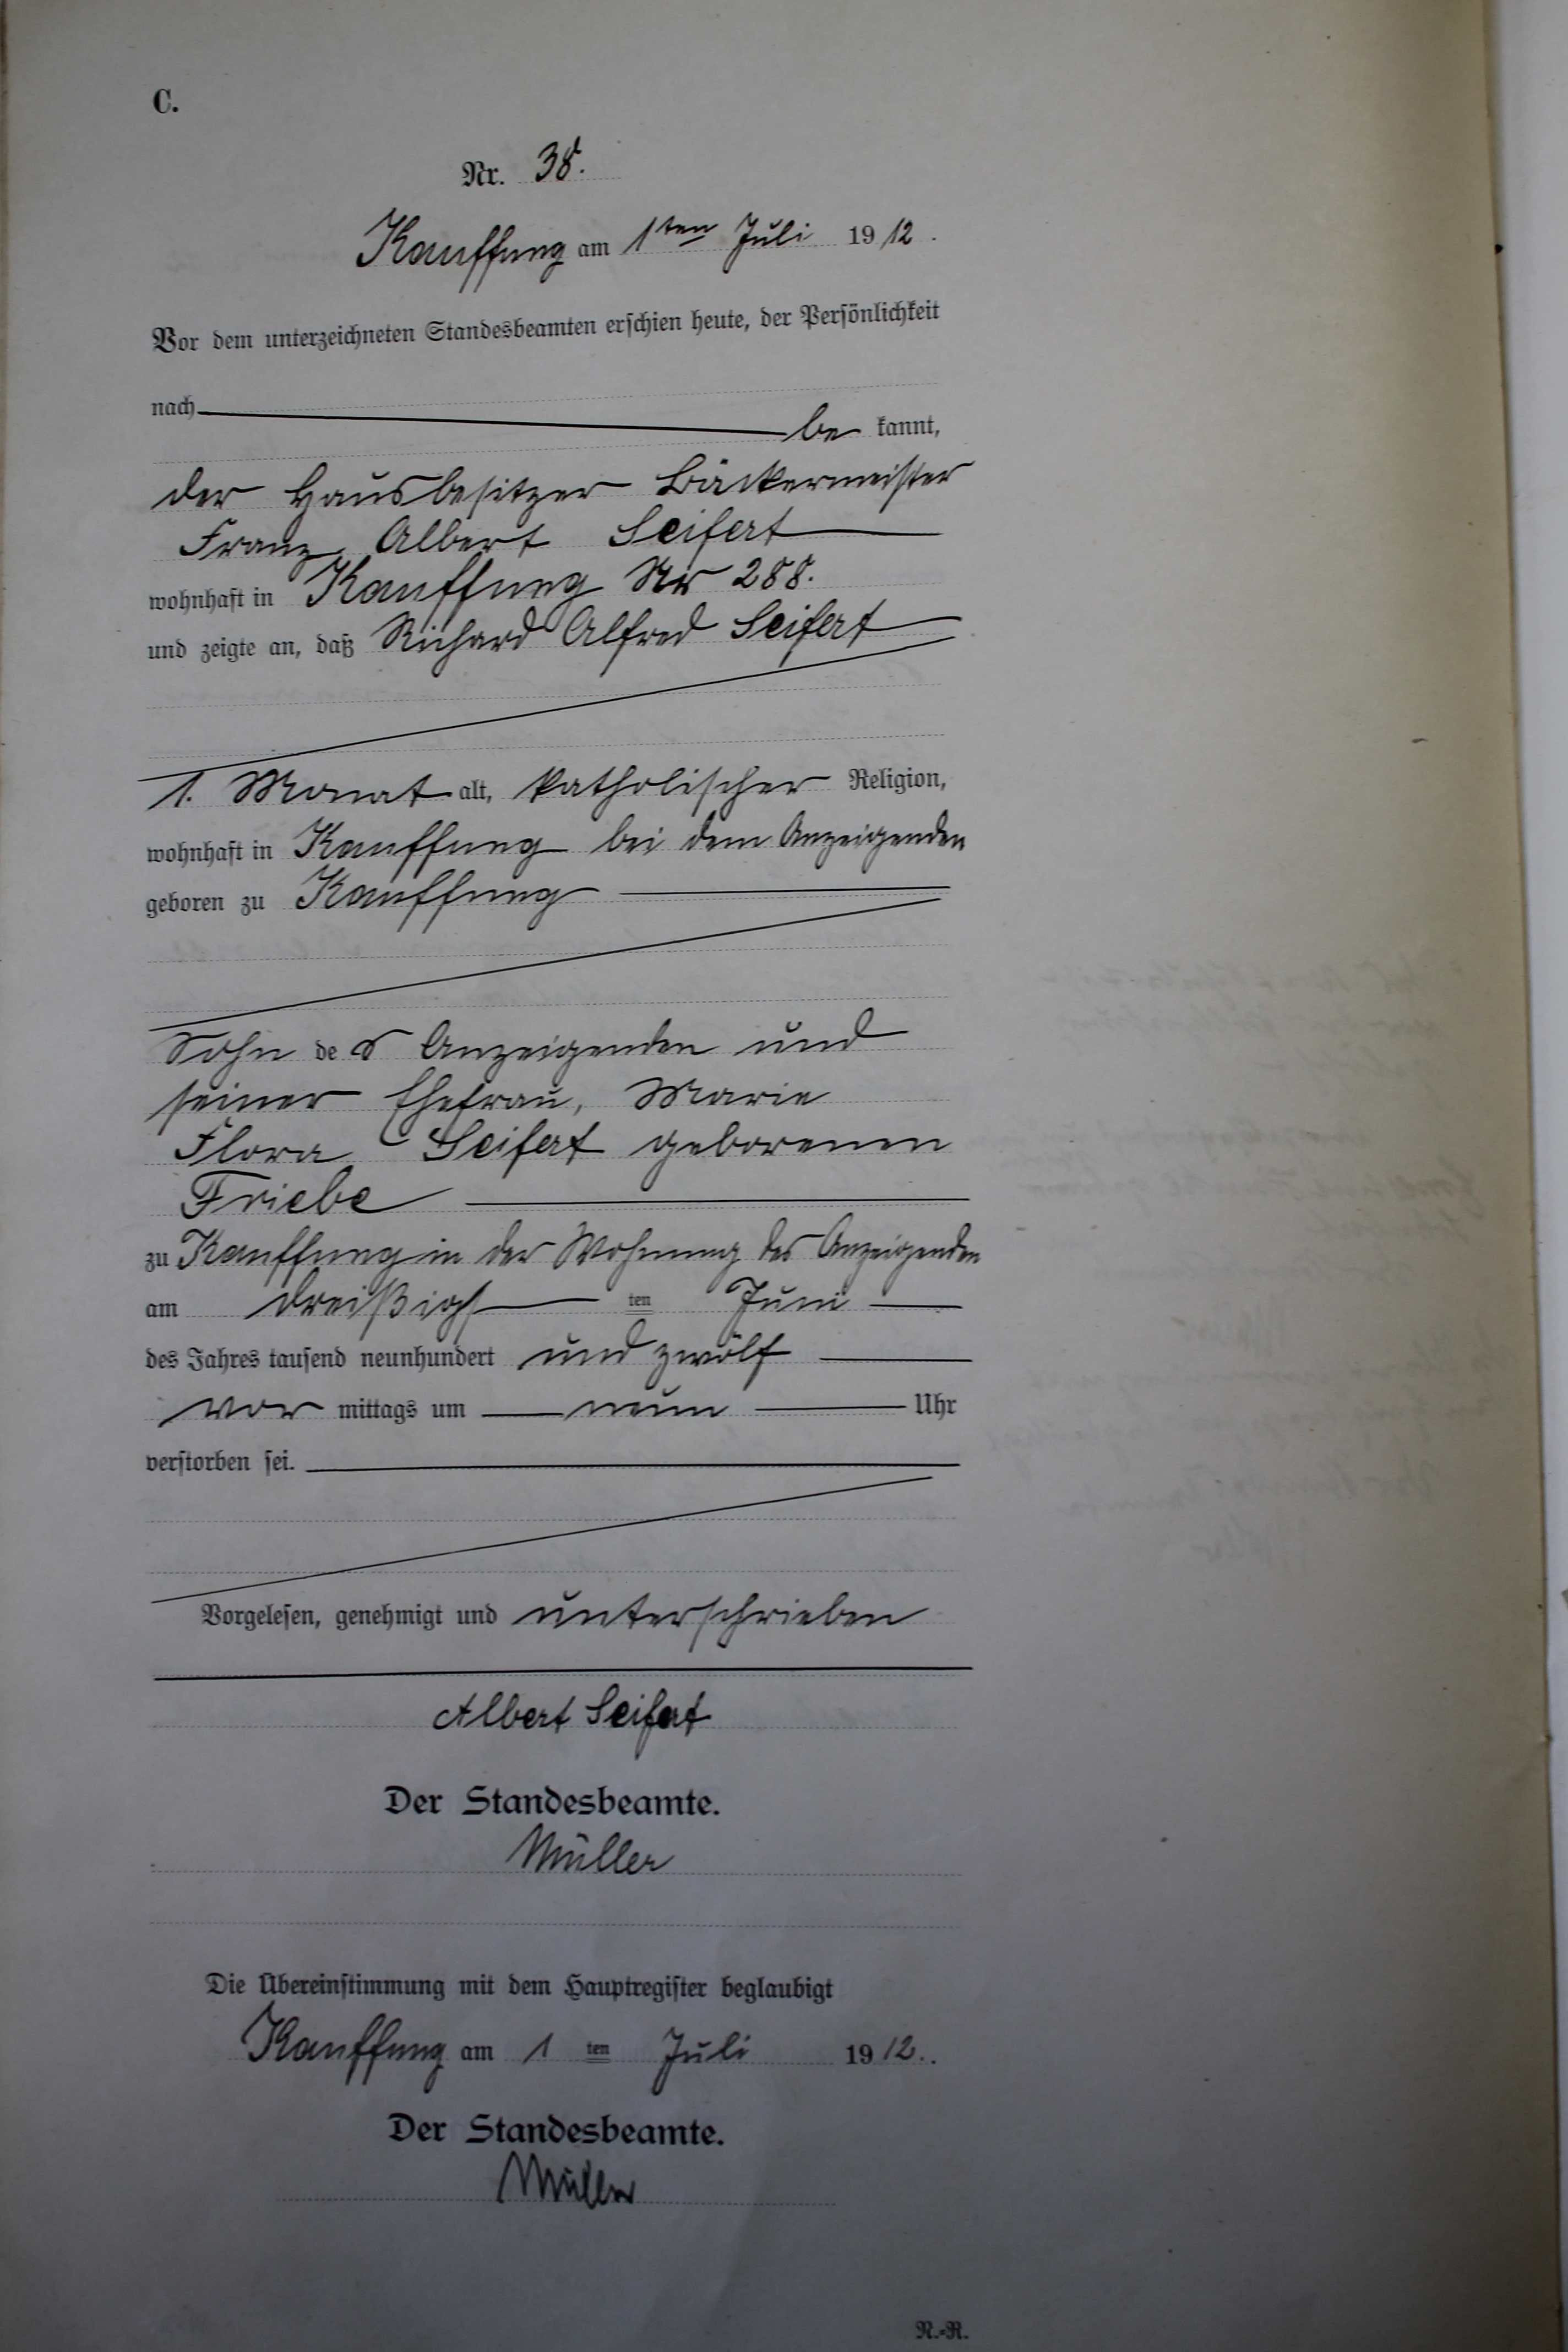 C.
Nr. 38.
Kauffung am 1ten Juli 1912.
Vor dem unterzeichneten Standesbeamten erschien heute, der Persönlichkeit
nach be kannt,
der Hausbesitzer Bäckermeister
Franz Albert Seifert
wohnhaft in Kauffung Nr 288.
und zeigte an, daß Richard Alfred Seifert
1. Monat alt, katholischer Religion,
wohnhaft in Kauffung bei dem Anzeigenden
geboren zu Kauffung
Sohn des Anzeigenden und
seiner Ehefrau, Marie
Flora Seifert geborenen
Friebe
zu Kauffung in der Wohnung des Anzeigenden
am dreißigs ten Juni
des Jahres tausend neunhundert und zwölf
vor mittags um neun Uhr
verstorben sei.
Vorgelesen, genehmigt und unterschrieben
Albert Seifert
Der Standesbeamte.
Müller
Die Übereinstimmung mit dem Hauptregister beglaubigt
Kauffung am 1 ten Juli 1912.
Der Standesbeamte.
Müller
R.-R.